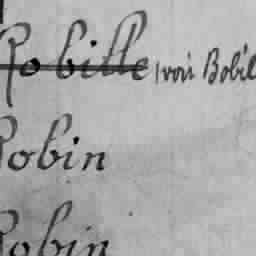 Robille (voir Bobil
Robin
Robin